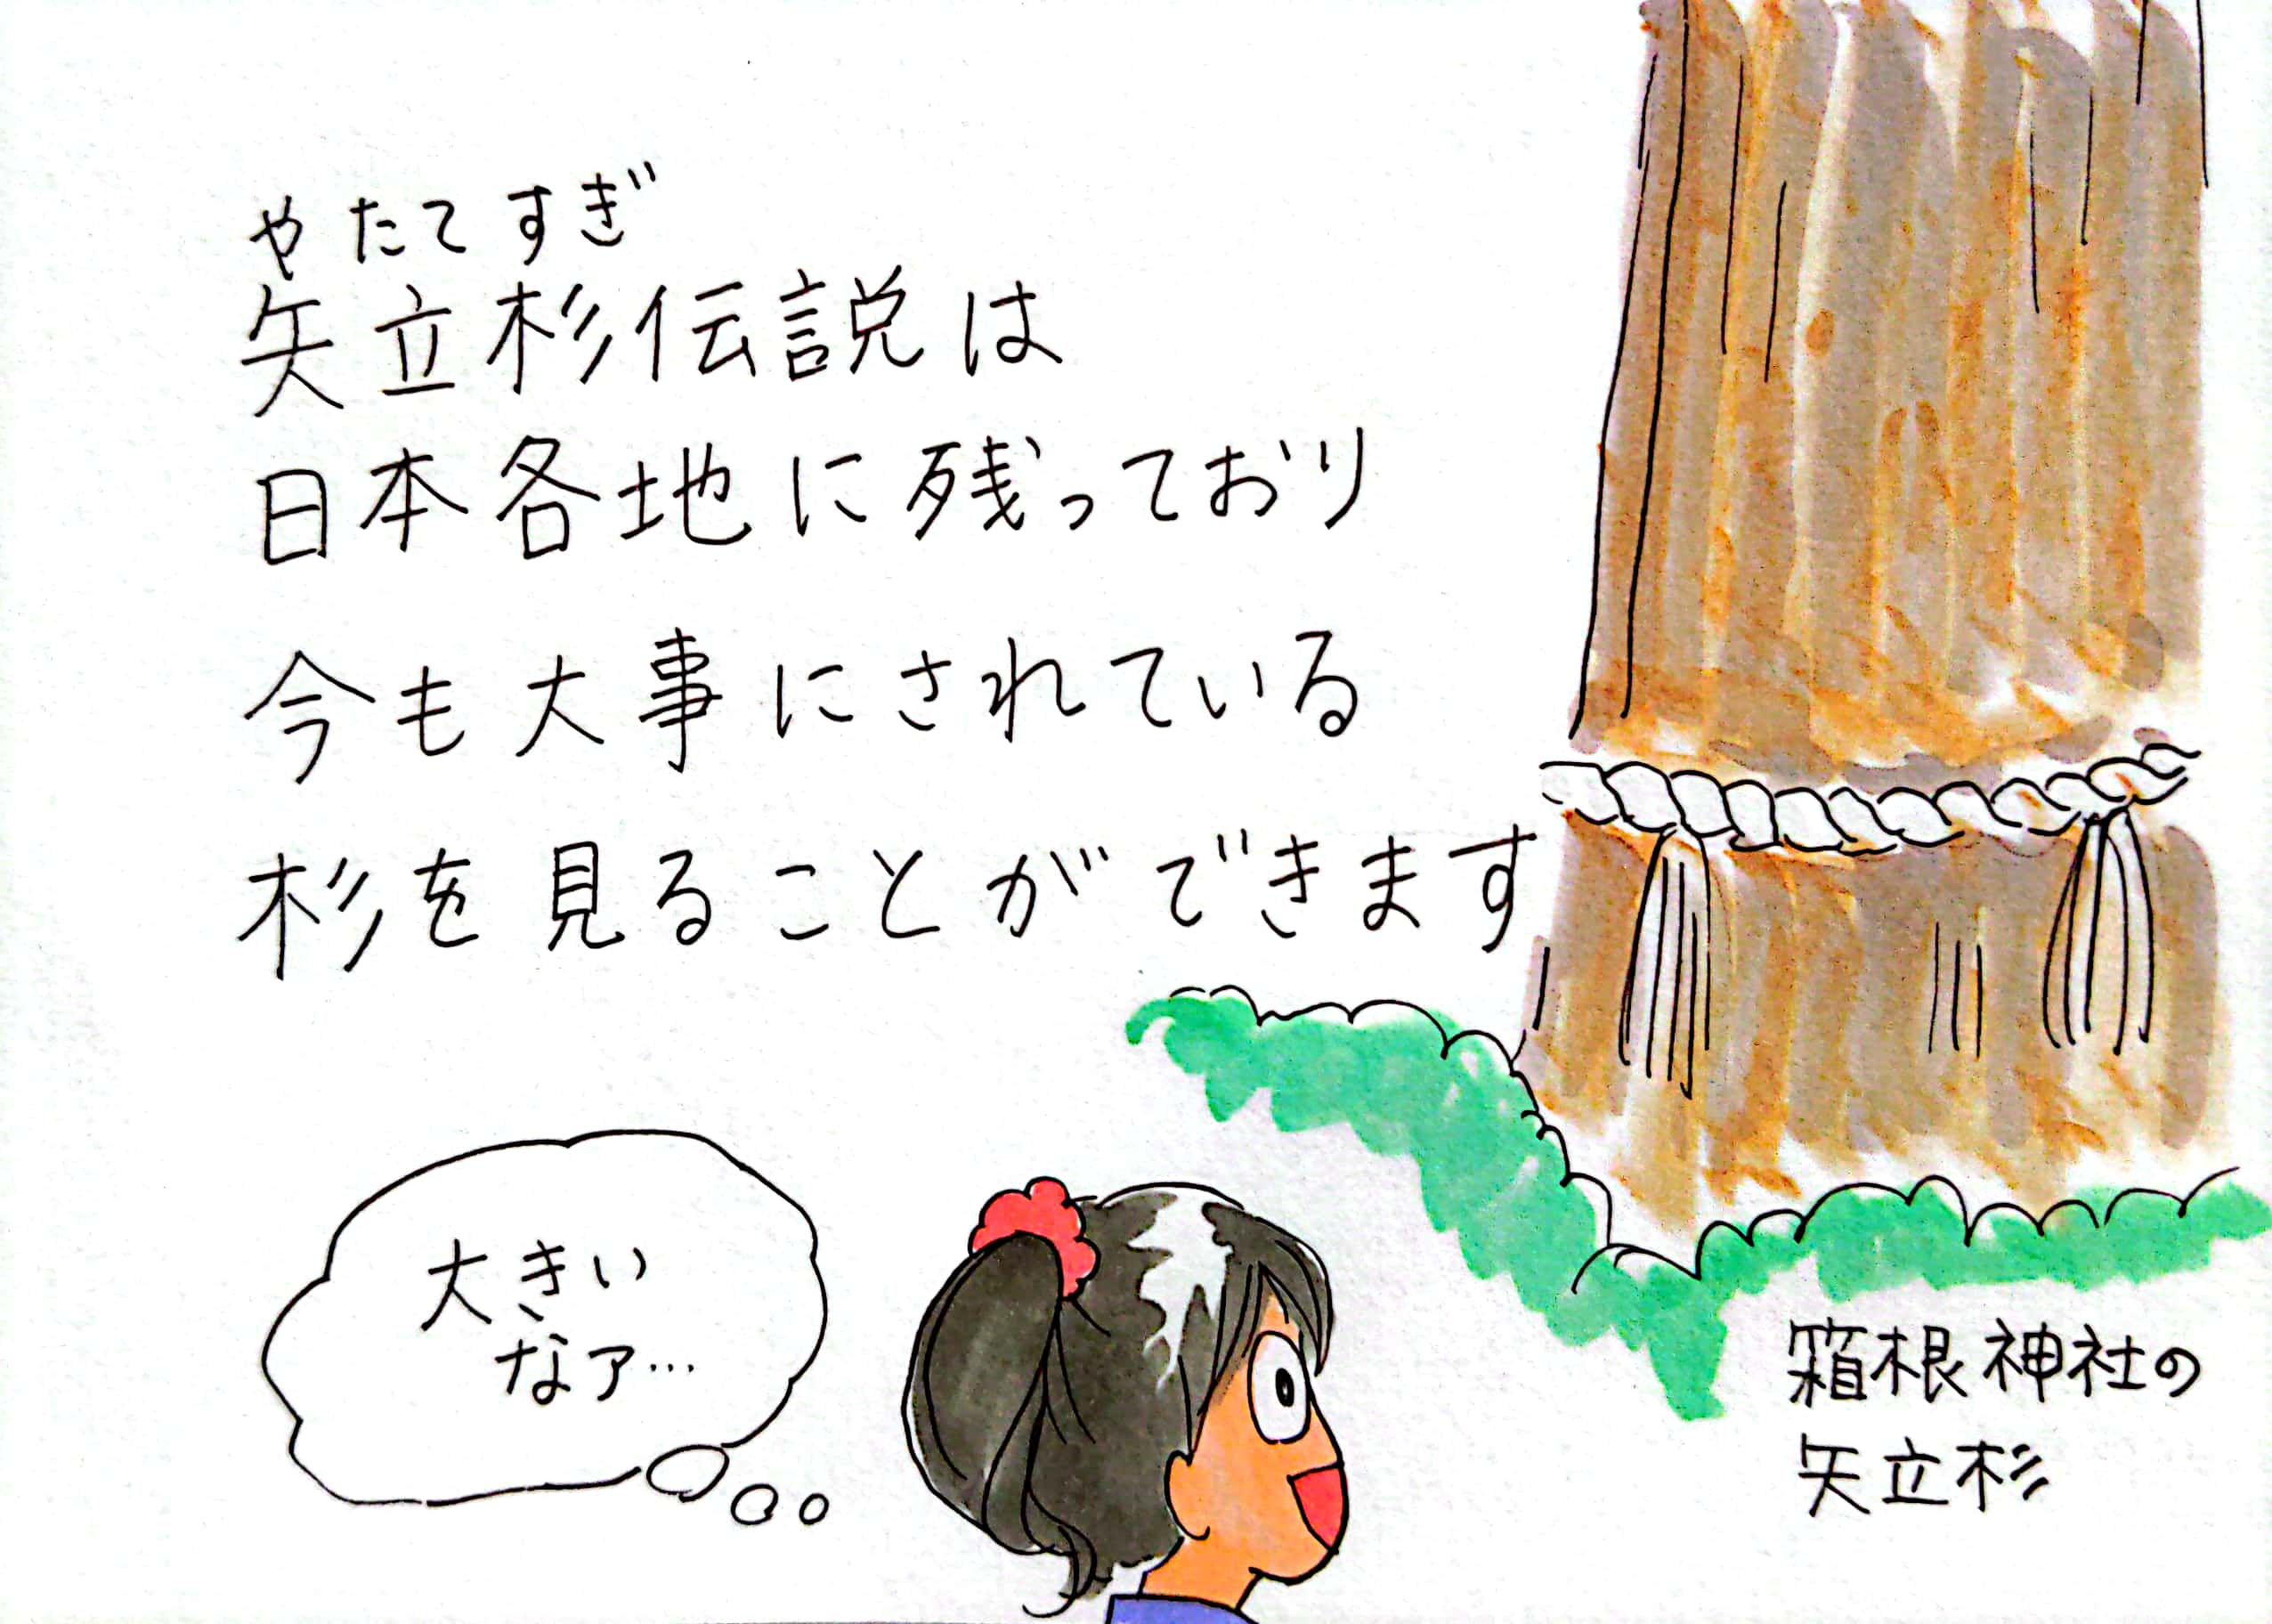 やたてすぎ
矢立杉伝説は
日本各地に残っており
今も大事にされている
杉を見ることができます
大きい
なァ…
箱根神社の
矢立杉